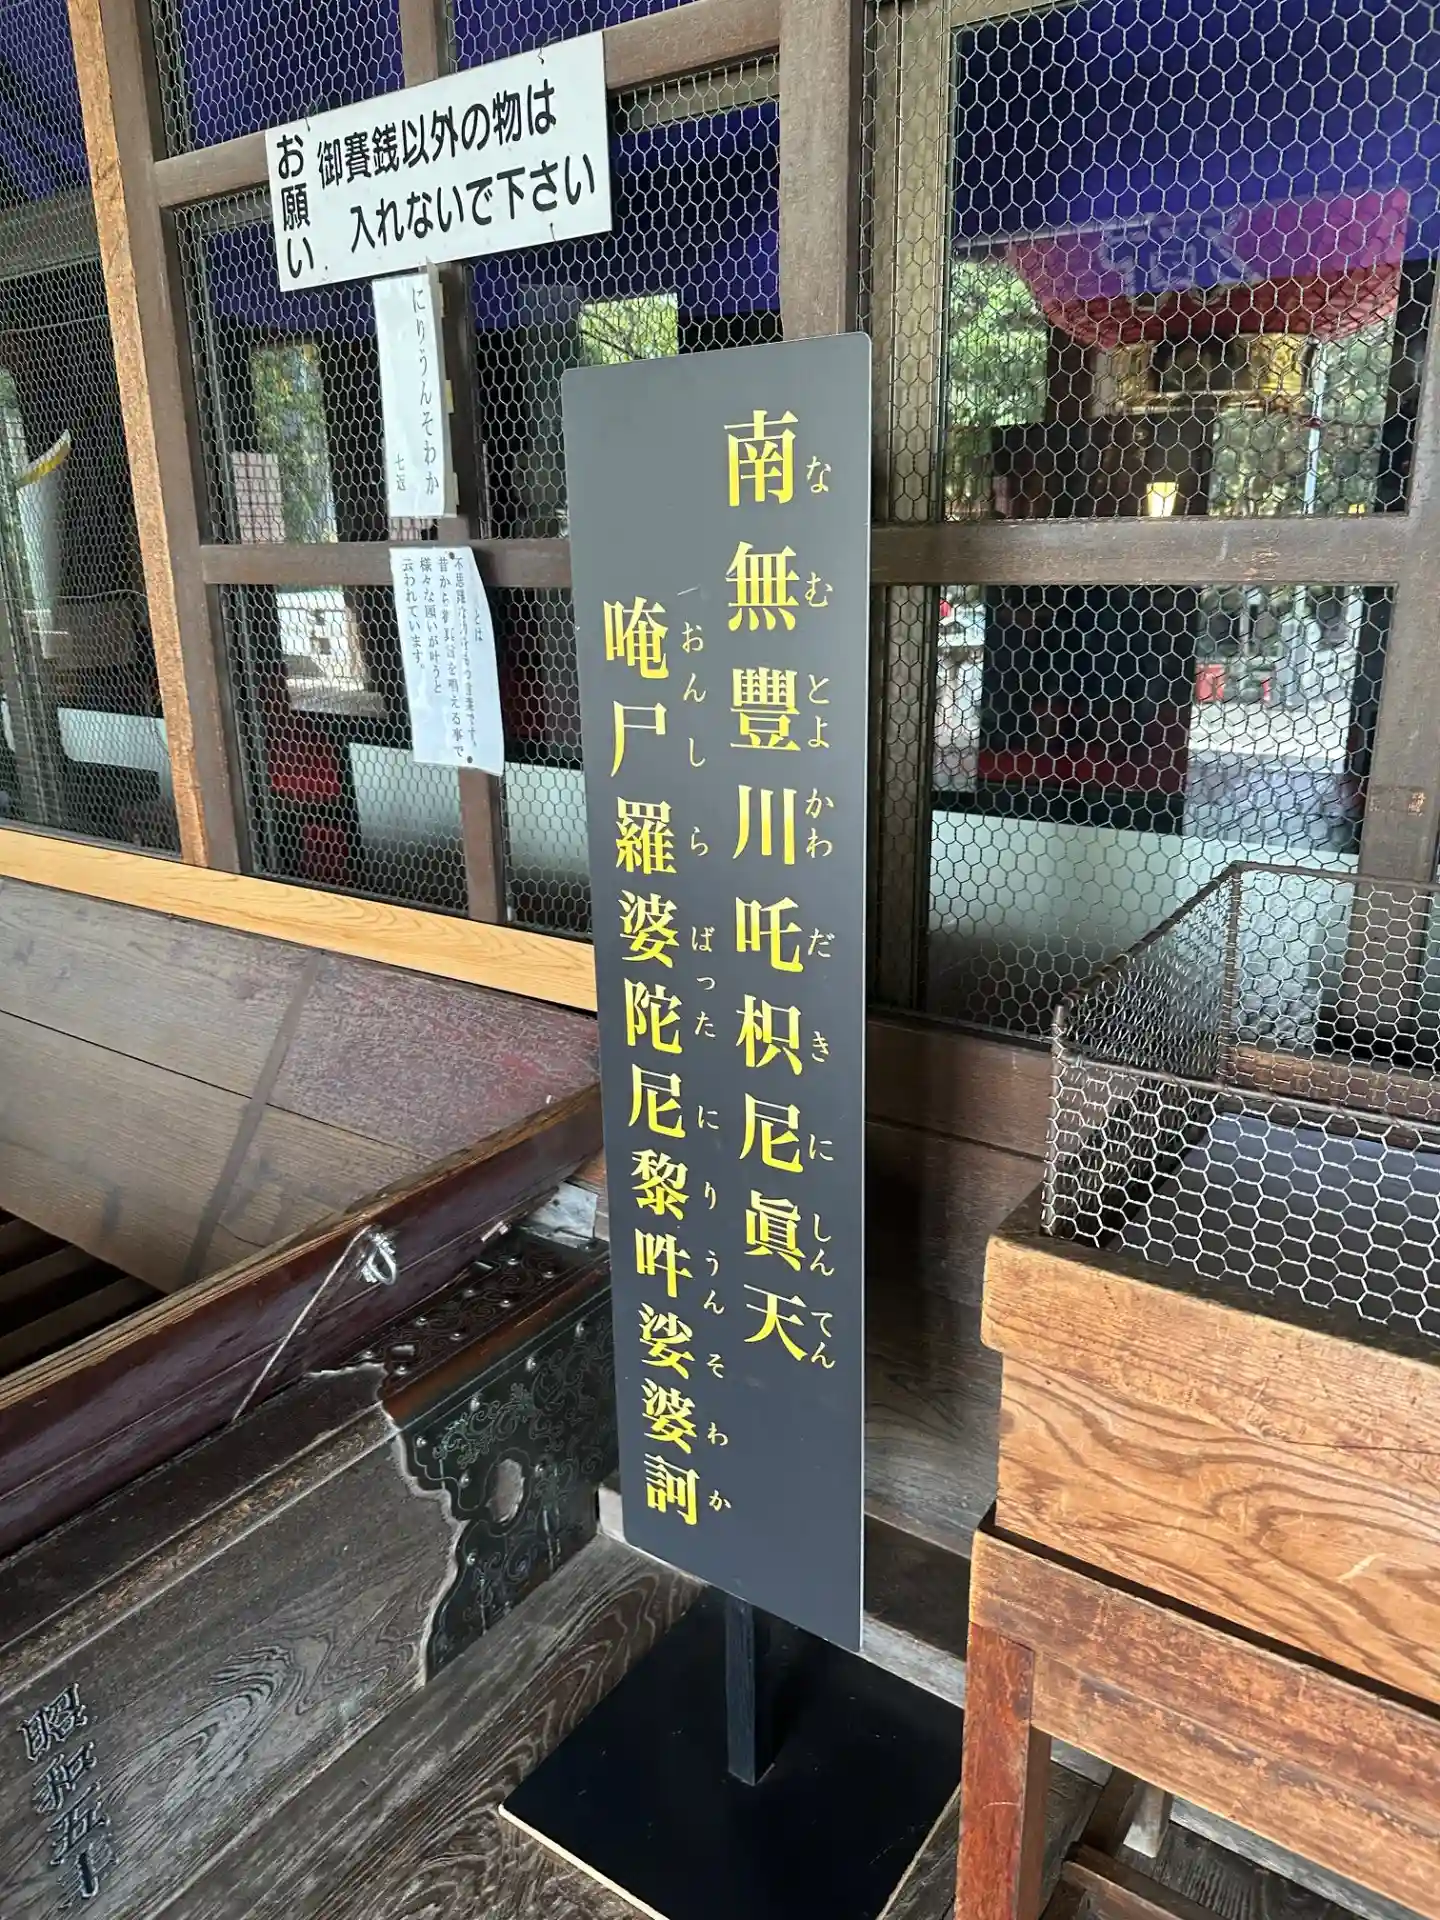 お願い
御賽銭以外の物は
入れないで下さい
にりうんそわか
七返
とは
言葉です。
昔から御真言を唱える事で
様々な願いが叶うと
云われています。
南無豐川吒枳尼眞天
なむとよかわだきにしんてん
唵尸羅婆陀尼黎吽娑婆訶
おんしらばったにりうんそわか
昭和五十